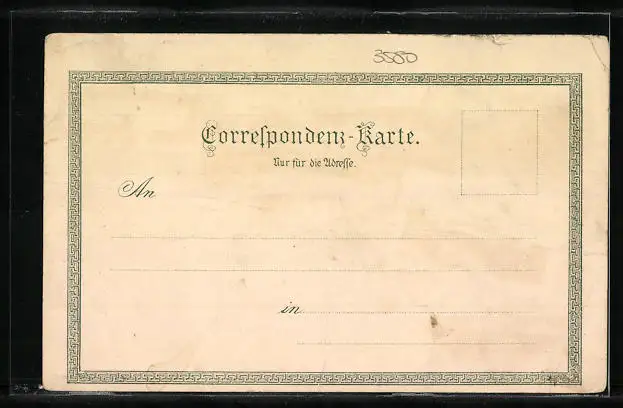 3550
Correſpondenz-Karte.
Nur für die Adreſſe.
An
in